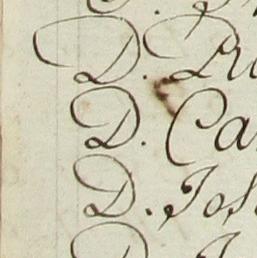 D. R
D. Ca
D. Jos
D. J